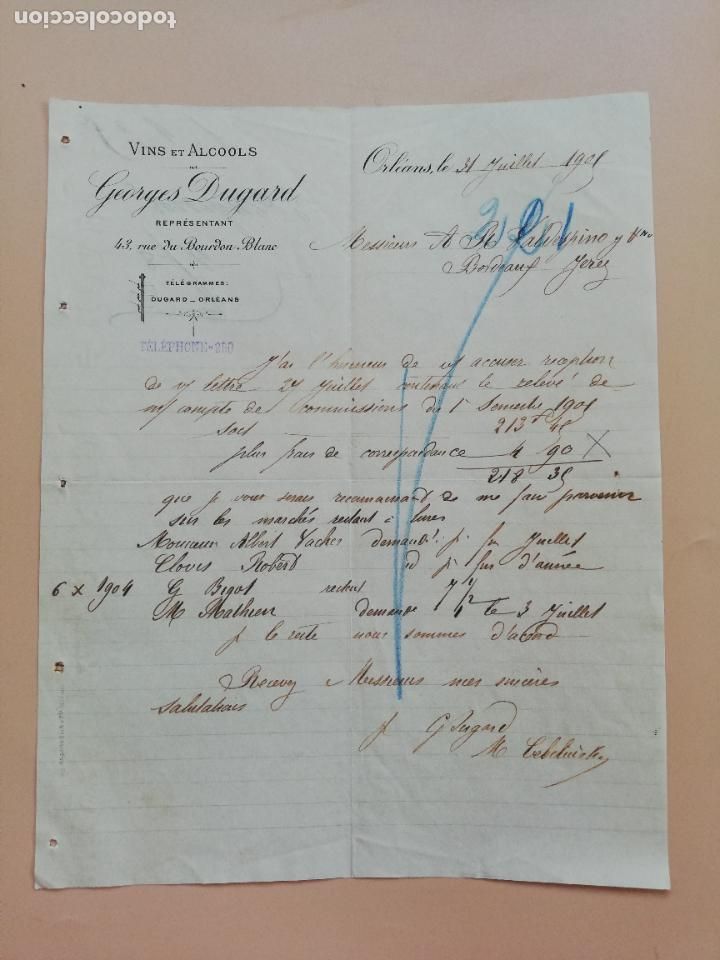 todocoleccion
VINS ET ALCOOLS
Georges Dugard
REPRÉSENTANT
43, rue du Bourdon-Blanc
TÉLÉGRAMMES:
DUGARD _ ORLÉANS
TÉLÉPHONE-250
Orléans, le 31 Juillet 1905
Messieurs A R Valdespino y Hno
Bordeaux Jerez
J'ai l'honneur de vs accuser reception
de vs lettre 27 Juillet contenant le relevé de
m/ compte de commissions du 1r Semestre 1905
soit 213 f 45
plus frais de correspondance 4 90 X
218 35
que je vous serais reconnaissant de me faire parvenir
sur les marchés restant à livrer
Monsieur Albert Vacher demande pr fin Juillet
Clovis Robert id pr fin d'année
6 x 1904 G Bigot restant 7 1/2
M Mathieu demande le 3 Juillet
pr le reste nous sommes d'accord
Recevez Messieurs mes sincères
salutations
pr G Dugard
M